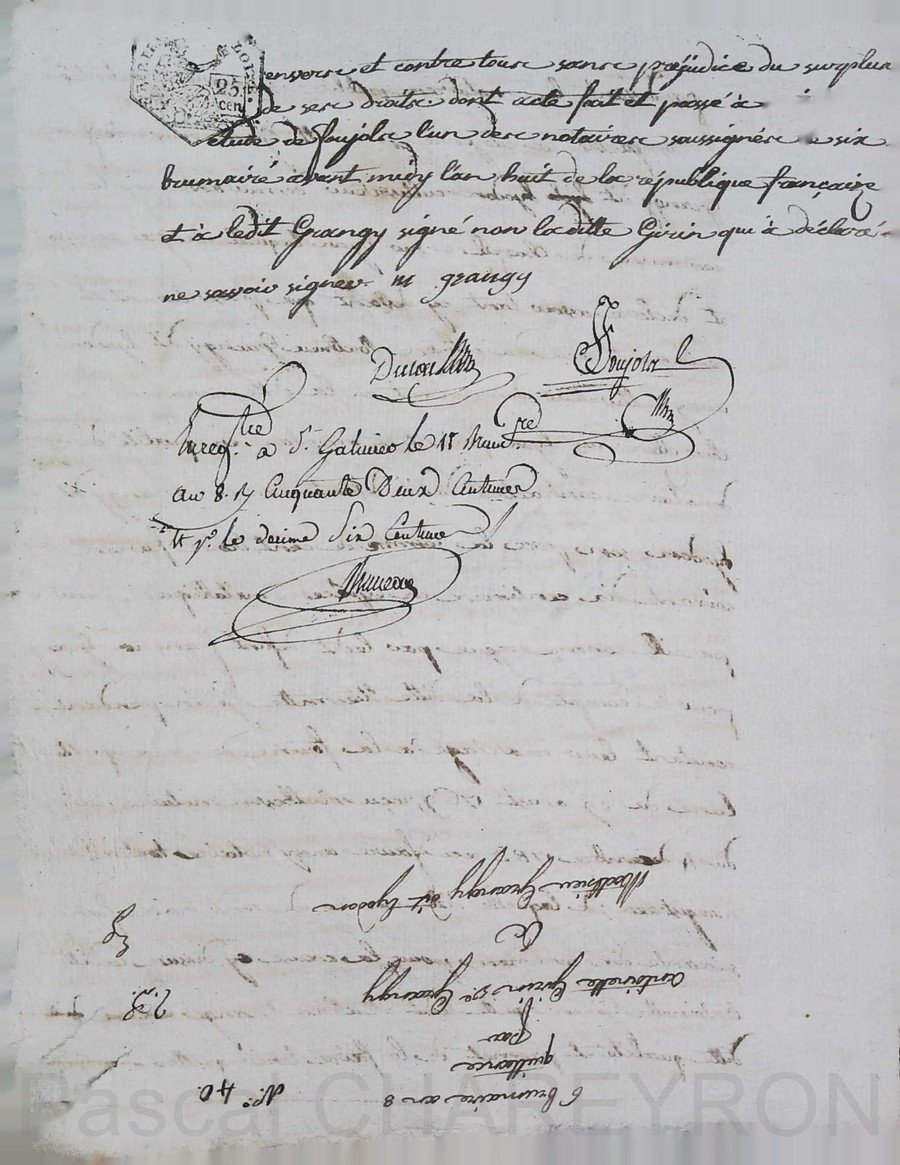 25.
cen
envers et contre tous sans préjudice du surplus
de ses droits. dont acte fait et passé à
étude de Soujols l'un des notaires soussignés six
brumaire avant midy l'an huit de la république française
et à ledit Grangy signé non laditte Girin qui à déclaré
ne savoir signer. m grangy
Soujols
Enreg.tré à St. Galmier le 11 brum.re
an 8. R Cinquante Deux Centimes
le decime Six Centimes
6 brumaire an 8 N.o 40.
quittance
par
antoinette Girin Ve. Grangy
à
Mathieu Grangy dit Lyodon
Pascal CHAPEYRON